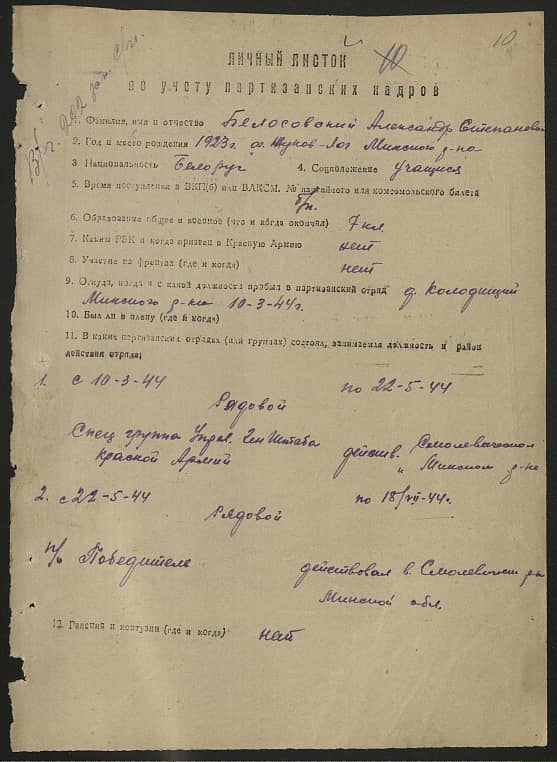 10
10
ЛИЧНЫЙ ЛИСТОК
по учету партизанских кадров
1. Фамилия, имя и отчество Белосовский Александр Степанович
2. Год и место рождения 1923г. Жуков-Луг Минского р-на
3 Национальность Белорус 4. Соцположение учащийся
5. Время поступления в ВКП(б) или ВЛКСМ. № партийного или комсомольского билета
б/п.
6. Образование общее и военное (что и когда окончил) 7 кл.
7. Каким РВК и когда призван в Красную Армию нет
8. Участие на фронтах (где и когда) нет
9. Откуда, когда и с какой должности прибыл в партизанский отряд д. Колодищи
Минского р-на 10-3-44г.
10. Был ли в плену (где и когда)
11. В каких партизанских отрядах (или группах) состоял, занимаемая должность и район
действия отряда;
1. с 10-3-44 по 22-5-44
Рядовой
Спец группа Управ. Ген Штаба действ. Смолевическом
Красной Армии и Минском р-не
2. с 22-5-44 по 18/VII-44г.
Рядовой
п/о Победители действовал в Смолевичск р-не
Минской обл.
12. Ранения и контузии (где и когда) нет